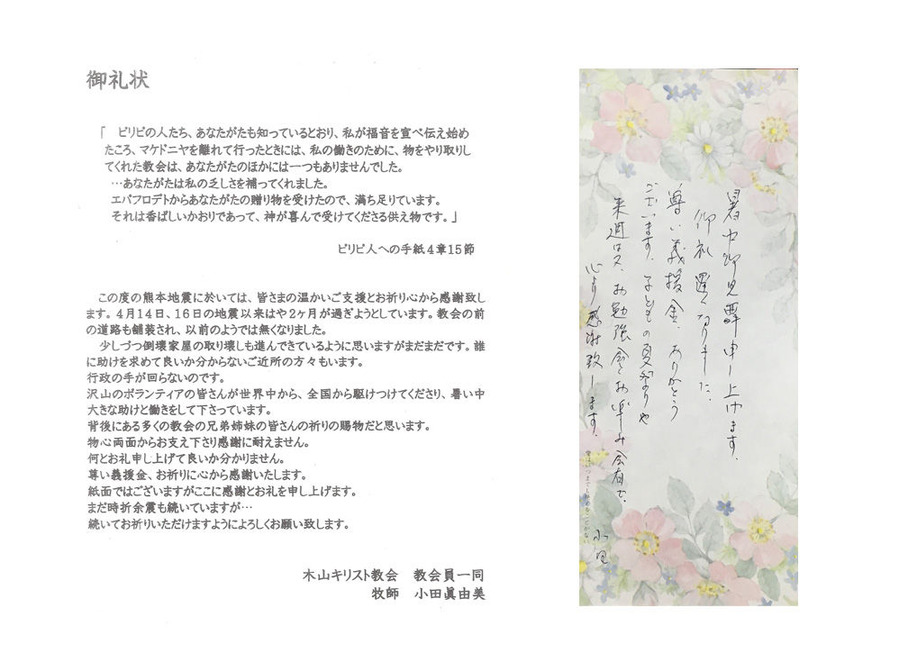 御礼状
「　ピリピの人たち、あなたがたも知っているとおり、私が福音を宣べ伝え始め
たころ、マケドニヤを離れて行ったときには、私の働きのために、物をやり取りし
てくれた教会は、あなたがたのほかには一つもありませんでした。
…あなたがたは私の乏しさを補ってくれました。
エパフロデトからあなたがたの贈り物を受けたので、満ち足りています。
それは香ばしいかおりであって、神が喜んで受けてくださる供え物です。」
ピリピ人への手紙４章15節
この度の熊本地震に於いては、皆さまの温かいご支援とお祈り心から感謝致し
ます。4月14日、16日の地震以来はや2ヶ月が過ぎようとしています。教会の前
の道路も舗装され、以前のようでは無くなりました。
少しづつ倒壊家屋の取り壊しも進んできているように思いますがまだまだです。誰
に助けを求めて良いか分からないご近所の方々もいます。
行政の手が回らないのです。
沢山のボランティアの皆さんが世界中から、全国から駆けつけてくださり、暑い中
大きな助けと働きをして下さっています。
背後にある多くの教会の兄弟姉妹の皆さんの祈りの賜物だと思います。
物心両面からお支え下さり感謝に耐えません。
何とお礼申し上げて良いか分かりません。
尊い義援金、お祈りに心から感謝いたします。
紙面ではございますがここに感謝とお礼を申し上げます。
まだ時折余震も続いていますが…
続いてお祈りいただけますようによろしくお願い致します。
木山キリスト教会　教会員一同
牧師　小田眞由美
暑中御見舞申し上げます.
御礼遅くなりました.
尊い義援金、ありがとう
ございます. 子どもの夏祭りや
来週は又、お勉強会お楽しみ会有で.
心より感謝致します.
小田